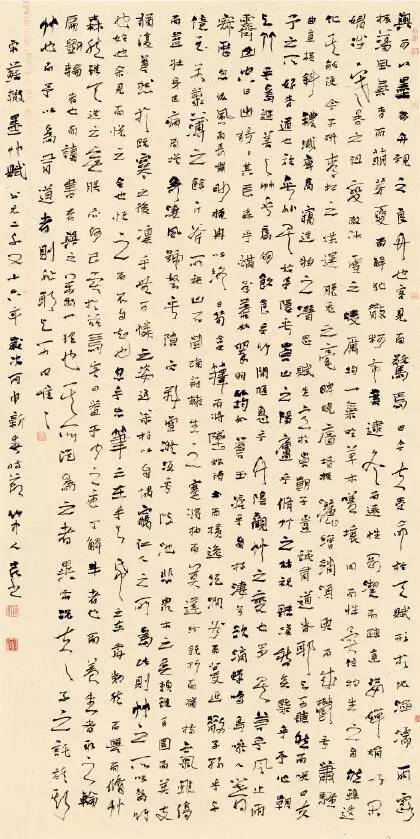 與可以墨為竹視之良竹也客見而驚焉曰今夫受命於天賦形於地涵濡雨露
振蕩風氣春而萌芽夏而解弛散柯布葉逮冬而遂性剛潔而疏直姿嬋娟以閑
媚涉寒暑之徂變傲冰雪之凌厲均一氣於草木嗟壤同而性異信物生之自然雖造
化其能使今子研青松之煤運脫兔之毫睥睨牆堵振灑繒綃須臾而成鬱乎蕭騷
曲直橫斜穠纖庳高竊造物之潛思賦生意於崇朝子豈誠有道者耶與可聽然而笑曰夫
予之所好者道也放乎竹矣始予隱乎崇山之陽廬乎修竹之林視聽漠然無概乎予心朝
與竹乎為游莫與竹乎為朋飲食乎竹間偃息乎竹陰觀竹之變也多矣若夫風止雨
霽山空日出猗猗其長森乎滿谷葉如翠羽筠如蒼玉澹乎自持淒兮欲滴蟬鳴鳥噪人響
寂歷忽依風而長嘯眇掩冉以終日筍含籜而將墜根得土而橫逸絕澗谷而蔓延散子孫乎千
億至若叢薄之餘斤斧所施山石犖埆荊棘生之蹇將抽而莫達紛既折而猶持氣雖傷
而益壯身已病而增奇淒風號怒乎隙穴飛雪凝沍乎陂池悲眾木之無賴雖百圍而莫支
猶復蒼然於既寒之後凜乎無可憐之姿追松柏以自偶竊仁人之所為此則竹之所以為竹
也始也余見而悅之今也悅之而不自知也忽乎忘筆之在手與紙之在前勃然而興而修竹
森然雖天造之無朕亦何以異於茲焉客曰蓋予聞之庖丁解牛者也而養生者取之輪
扁斫輪者也而讀書者與之萬物一理也其所從為之者異爾況夫夫子之託於斯
竹也而予以為有道者則非耶與可曰唯唯
宋蘇轍墨竹賦公元二千又十六年歲次丙申新春時節竹人